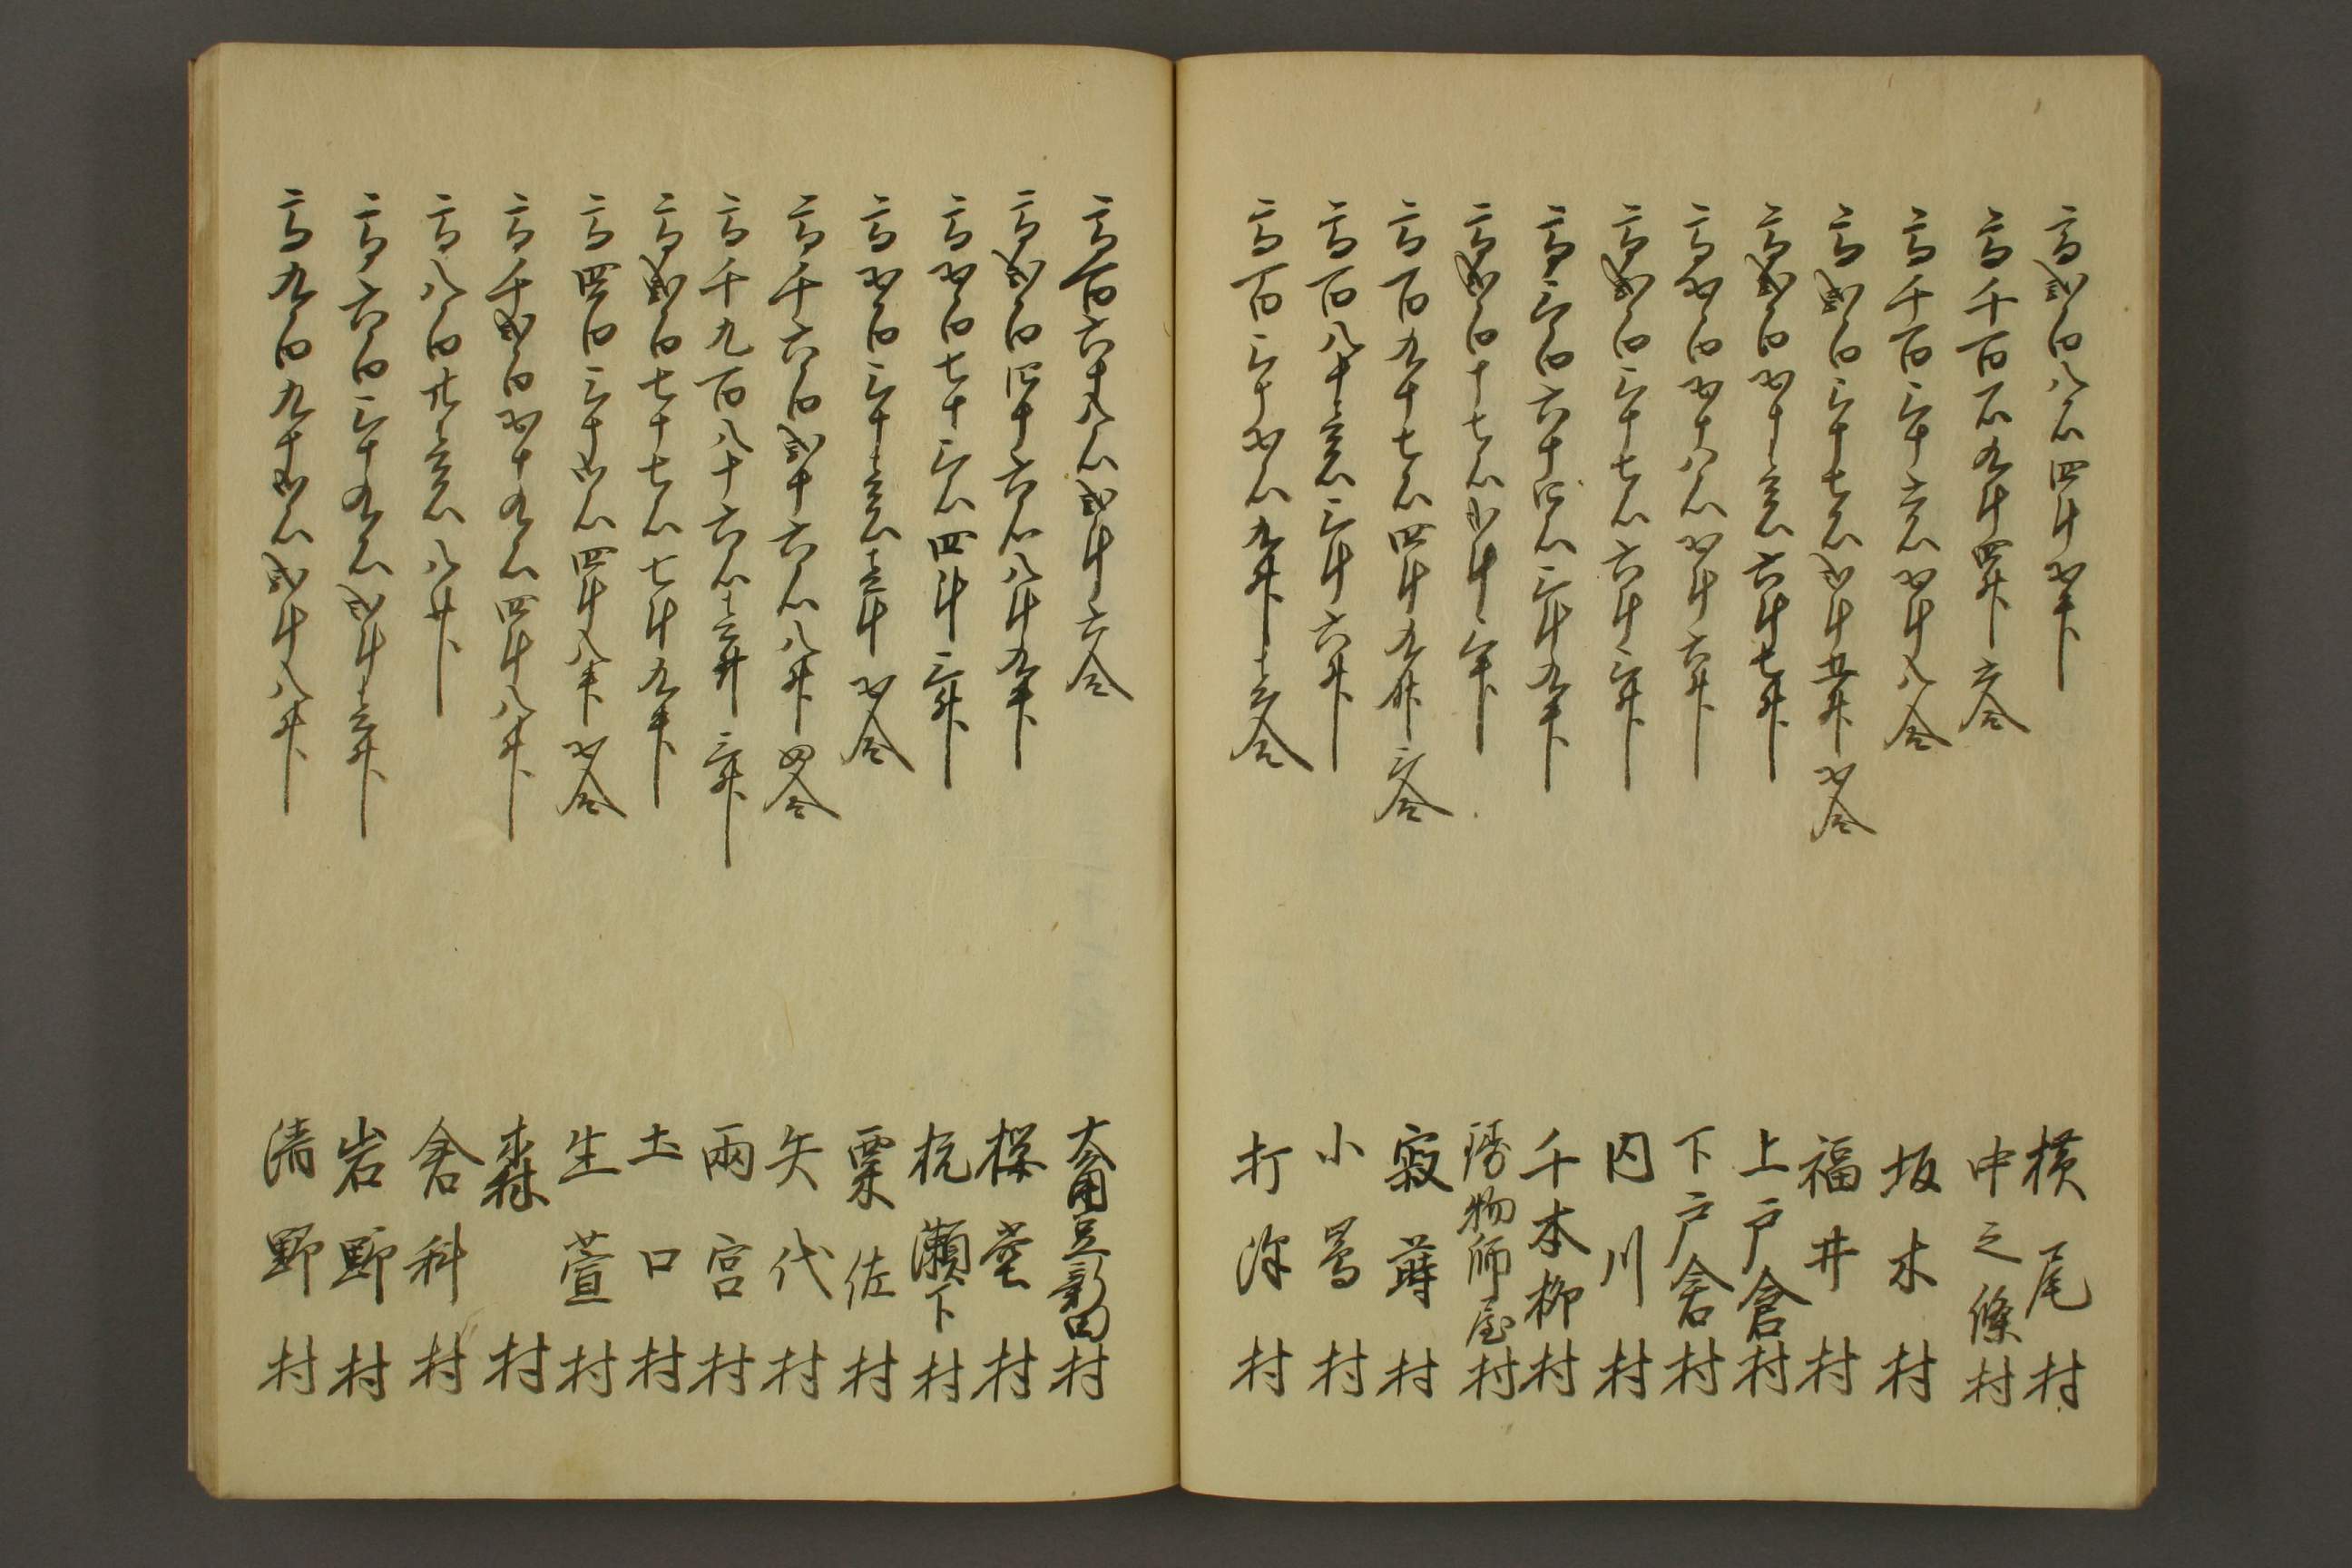 高弐百八石四斗五升 横尾村
高千百石九斗四升六合 中之條村
高千百三十六石五斗八合 坂木村
高弐百三十七石弐斗五升五合 福井村
高弐百五十壱石六斗七升 上戸倉村
高五百五十八石五斗六升 下戸倉村
高弐百三十七石六斗三升 内川村
高三百六十四石三斗九升 千本柳村
高弐百十七石弐斗三升 鋳物師屋村
高百九十七石四斗九升六合 寂蒔村
高百八十壱石三斗六升 小嶌村
高百三十五石九升壱合 打沢村
高百六十八石弐斗六合 大角豆新田村
高弐百四十六石八斗九升 桜堂村
高五百七十三石四斗三升 杭瀬下村
高五百三十壱石壱斗五合 粟佐村
高千六百弐十六石八升四合 矢代村
高千九百八十六石壱斗三升 雨宮村
高弐百七十七石七斗九升 土口村
高四百三十弐石四斗八升五合 生萱村
高千弐百五十九石四斗八升 森村
高八百廿壱石八升 倉科村
高六百三十九石弐斗壱升 岩野村
高九百九十弐石弐斗八升 清野村